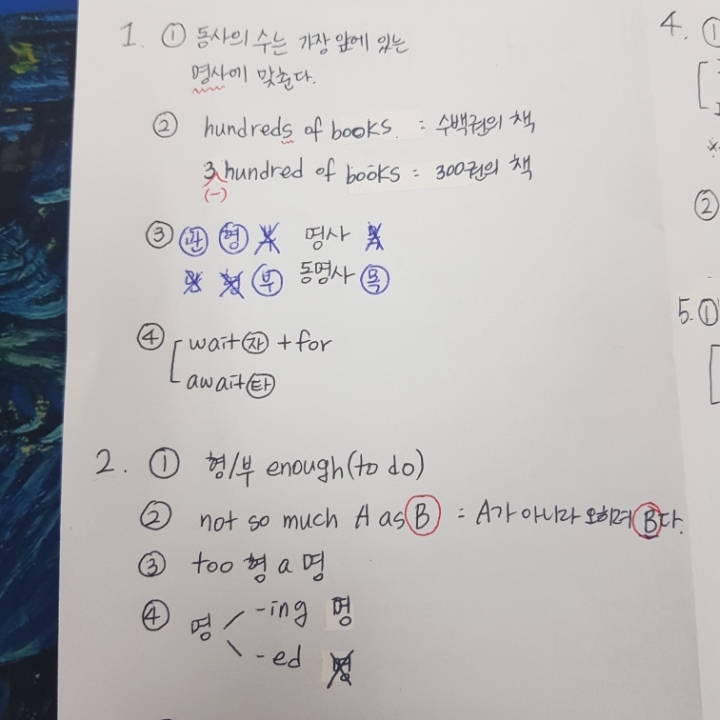 1. ① 동사의 수는 가장 앞에 있는
명사에 맞춘다.
② hundreds of books. : 수백권의 책
3 hundred of books : 300권의 책
(-)
③ 관 형 명사
부 동명사 목
④ wait 자 + for
await 타
2. ① 형/부 enough (to do)
② not so much A as B = A가 아니라 오히려 B다.
③ too 형 a 명
④ 명 -ing 명
-ed 명
4. ①
②
5. ①